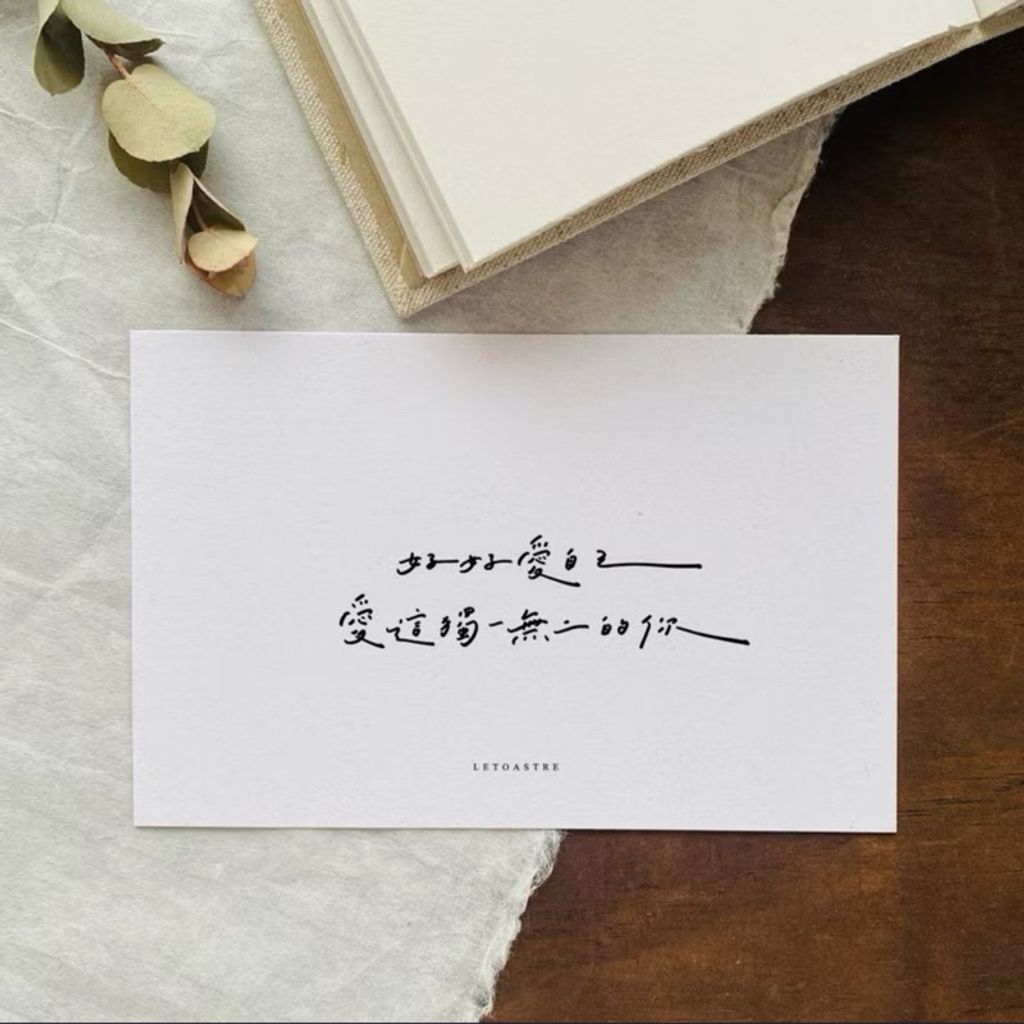 好好愛自己
愛這獨一無二的你
LETOASTRE